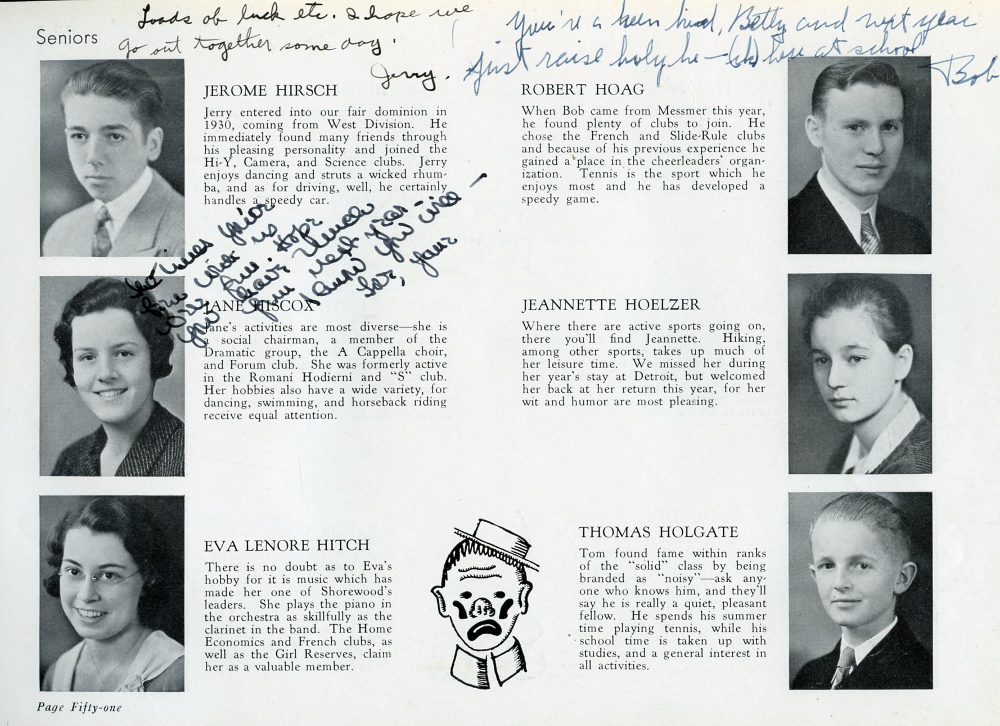 Loads of luck etc. I hope we
go out together some day.
Jerry.
You're a keen kid, Betty and next year
just raise holy he— (ck) here at school
Bob
Seniors
JEROME HIRSCH
Jerry entered into our fair dominion in
1930, coming from West Division. He
immediately found many friends through
his pleasing personality and joined the
Hi-Y, Camera, and Science clubs. Jerry
enjoys dancing and struts a wicked rhum-
ba, and as for driving, well, he certainly
handles a speedy car.
your
is
Hope
have
next year
know you will
for, Jane
JANE HISCOX
Jane's activities are most diverse—she is
a social chairman, a member of the
Dramatic group, the A Cappella choir,
and Forum club. She was formerly active
in the Romani Hodierni and "S" club.
Her hobbies also have a wide variety, for
dancing, swimming, and horseback riding
receive equal attention.
EVA LENORE HITCH
There is no doubt as to Eva's
hobby for it is music which has
made her one of Shorewood's
leaders. She plays the piano in
the orchestra as skillfully as the
clarinet in the band. The Home
Economics and French clubs, as
well as the Girl Reserves, claim
her as a valuable member.
ROBERT HOAG
When Bob came from Messmer this year,
he found plenty of clubs to join. He
chose the French and Slide-Rule clubs
and because of his previous experience he
gained a place in the cheerleaders' organ-
ization. Tennis is the sport which he
enjoys most and he has developed a
speedy game.
JEANNETTE HOELZER
Where there are active sports going on,
there you'll find Jeannette. Hiking,
among other sports, takes up much of
her leisure time. We missed her during
her year's stay at Detroit, but welcomed
her back at her return this year, for her
wit and humor are most pleasing.
THOMAS HOLGATE
Tom found fame within ranks
of the "solid" class by being
branded as "noisy"—ask any-
one who knows him, and they'll
say he is really a quiet, pleasant
fellow. He spends his summer
time playing tennis, while his
school time is taken up with
studies, and a general interest in
all activities.
Page Fifty-one